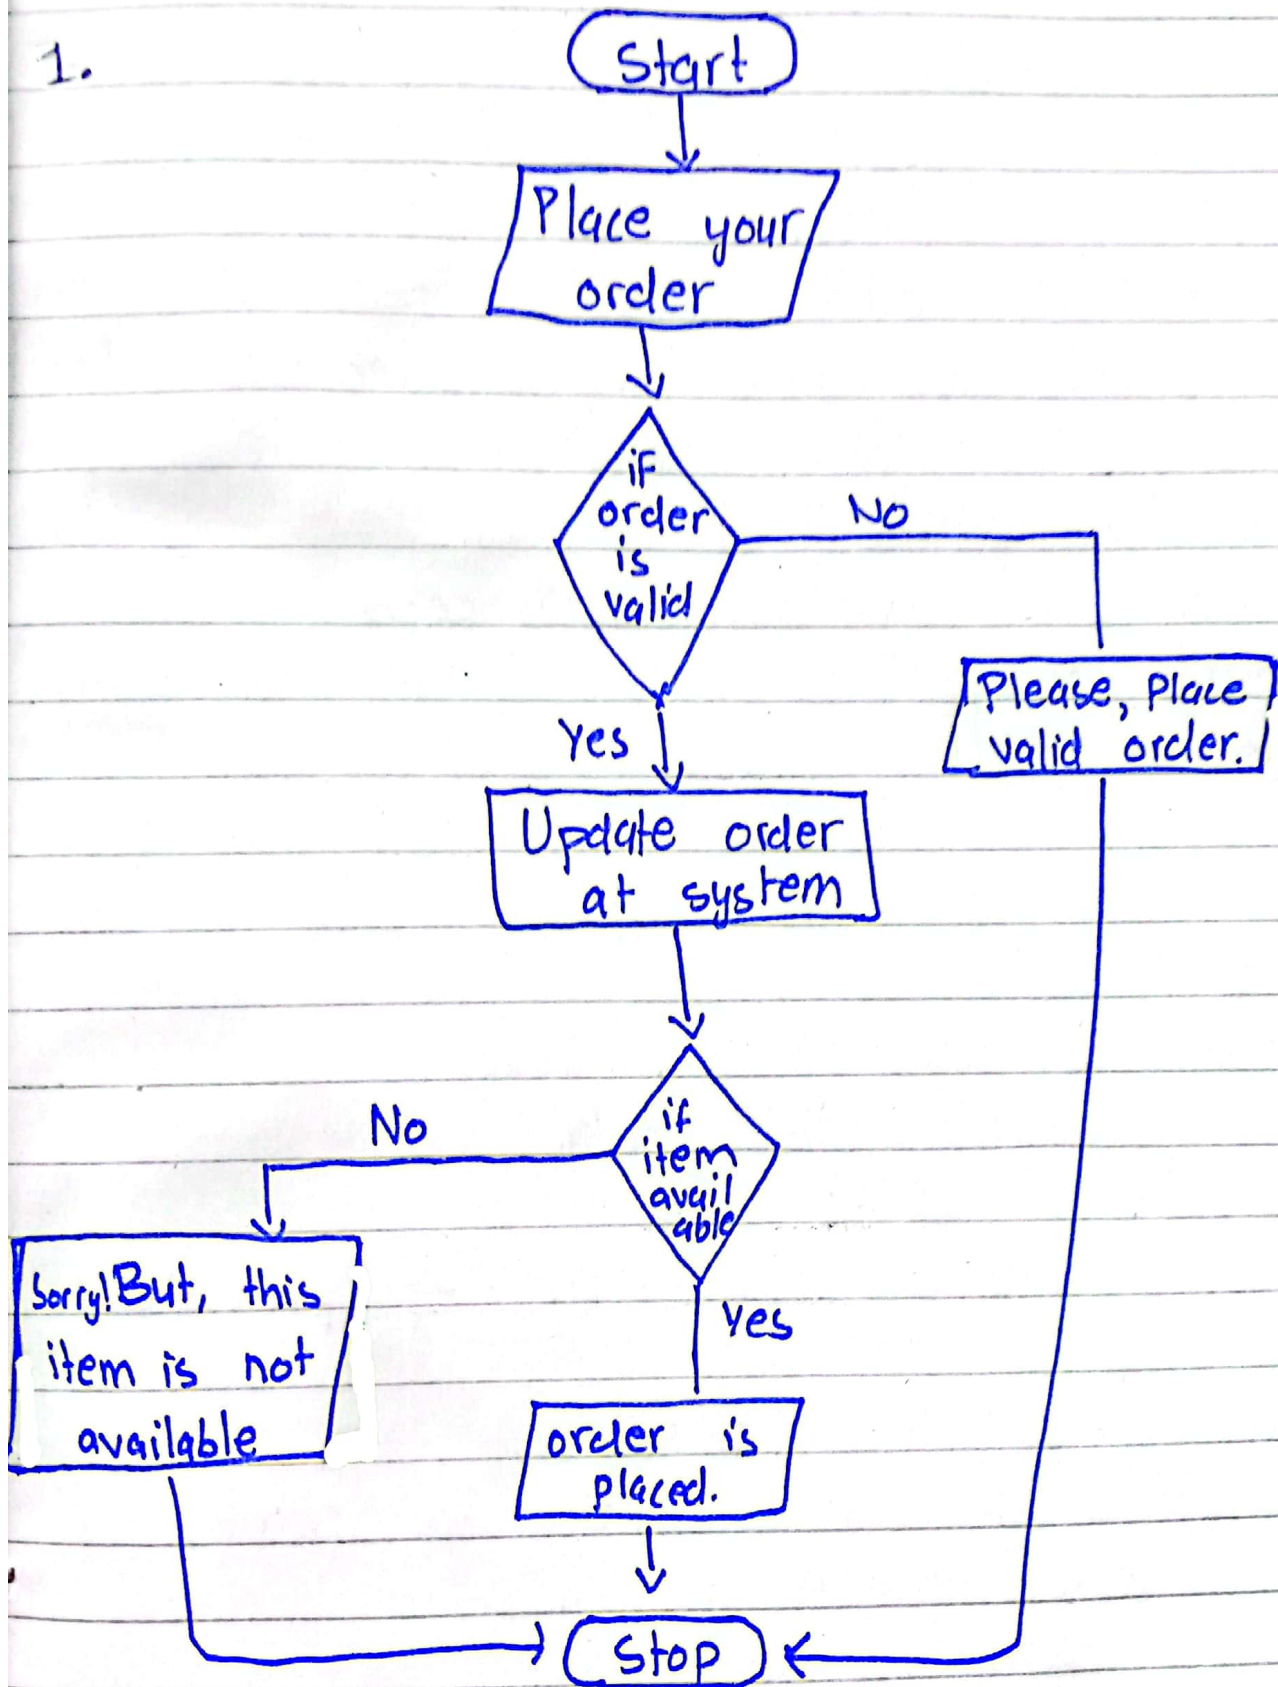 1.
Start
Place your
order
if
order
is
valid
No
Please, Place
valid order.
Yes
Update order
at system
if
item
avail
able
No
Sorry! But, this
item is not
available
Yes
order is
placed.
Stop